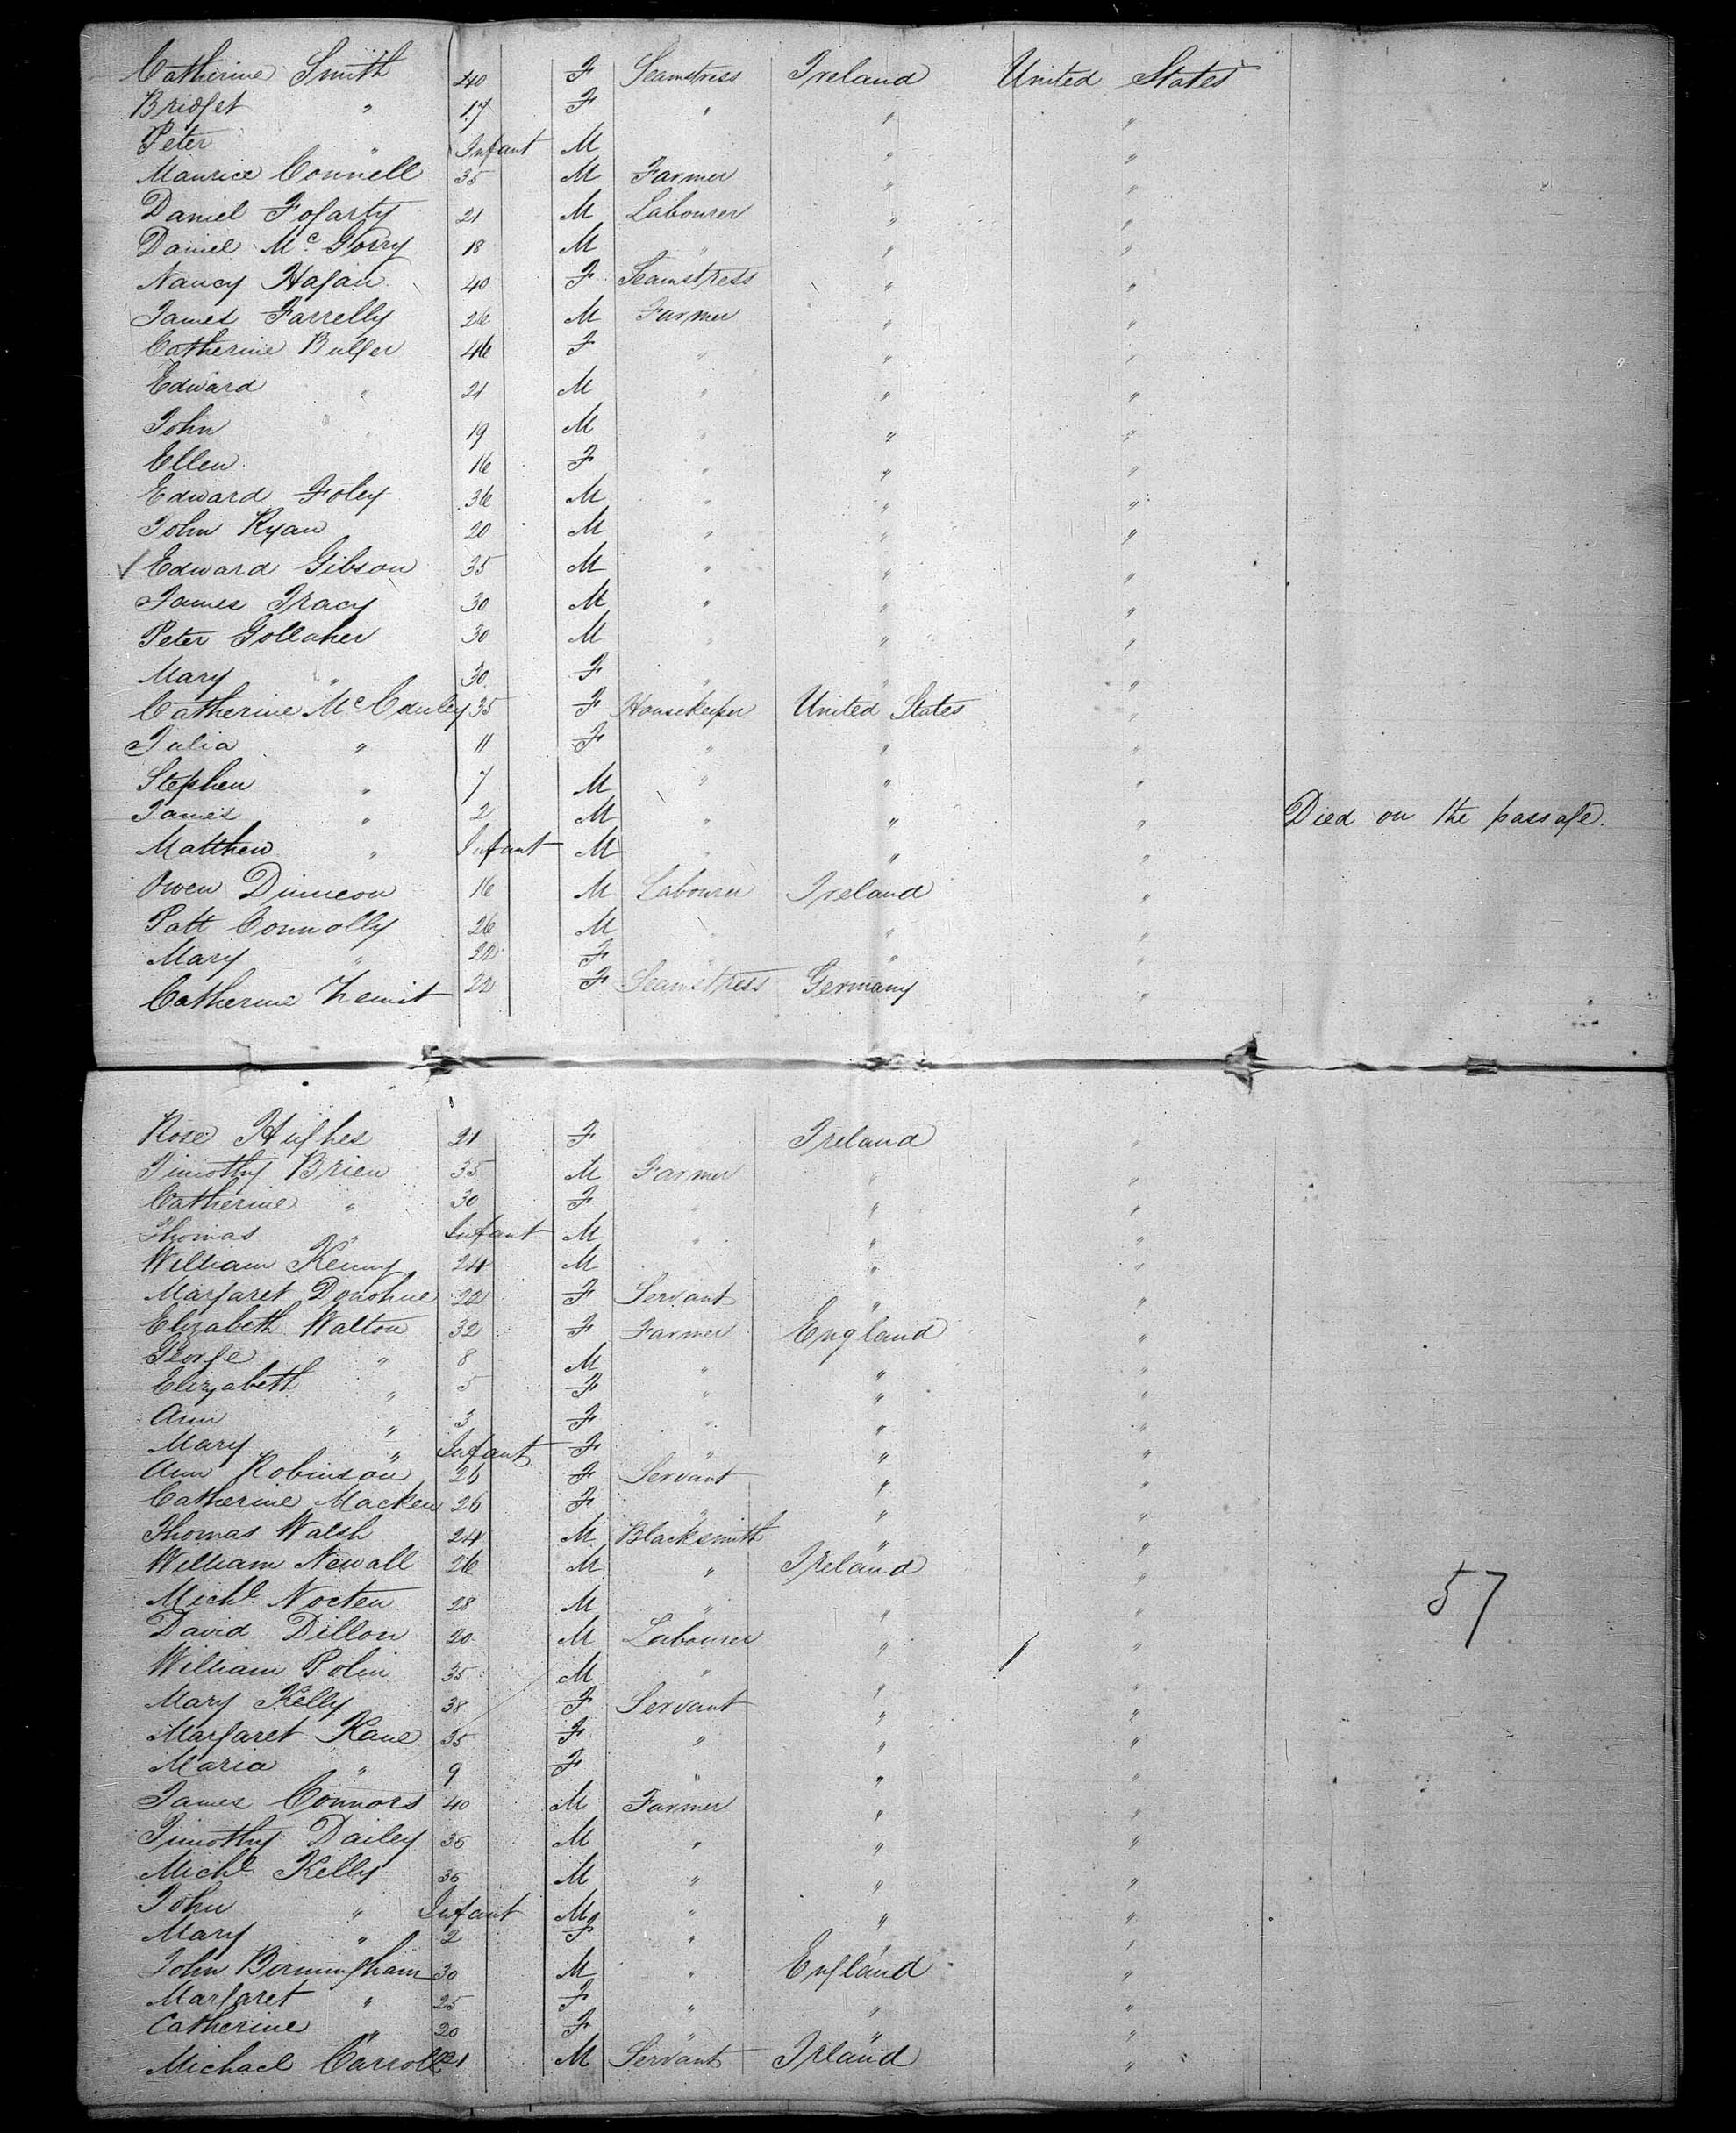 Catherine Smith 40 F Seamstress Ireland United States
Bridget " 17 F " " "
Peter " Infant M " "
Maurice Connell 35 M Farmer " "
Daniel Fogarty 21 M Labourer " "
Daniel Mc Gorry 18 M " " "
Nancy Hagan 40 F Seamstress " "
James Farrelly 26 M Farmer " "
Catherine Bulger 46 F " " "
Edward " 21 M " " "
John " 19 M " " "
Ellen 16 F " " "
Edward Foley 36 M " " "
John Ryan 20 M " " "
✓ Edward Gibson 35 M " " "
James Tracy 30 M " " "
Peter Gollaher 30 M " " "
Mary " 30 F " " "
Catherine Mc Cauley 35 F Housekeeper United States "
Julia " 11 F " " "
Stephen " 7 M " " "
James " 2 M " " " Died on the passage.
Matthew " Infant M " " "
Owen Dinneon 16 M Labourer Ireland "
Patt Connolly 26 M " " "
Mary " 22 F " " "
Catherine 22 F Seamstress Germany "
Rose Hughes 21 F Ireland "
Timothy Brien 35 M Farmer " "
Catherine " 30 F " " "
Thomas " Infant M " " "
William Kenny 24 M " "
Margaret Donohue 22 F Servant " "
Elizabeth Walton 32 F Farmer England "
George " 8 M " " "
Elizabeth " 5 F " " "
Ann " 3 F " " "
Mary " Infant F " " "
Ann Robinson 26 F Servant " "
Catherine Macken 26 F " " "
Thomas Walsh 24 M Blacksmith " "
William Newall 26 M " Ireland "
Michl. Nocten 28 M " " "
David Dillon 20 M Labourer " "
William Polin 35 M " " "
Mary Kelly 38 F Servant " "
Margaret Kane 35 F " " "
Maria " 9 F " " "
James Connors 40 M Farmer " "
Timothy Dailey 36 M " " "
Michl. Kelly 36 M " " "
John " Infant M " " "
Mary " 2 F " " "
John Birmingham 30 M " England "
Margaret " 25 F " " "
Catherine " 20 F " " "
Michael Carroll 21 M Servant Ireland "
57